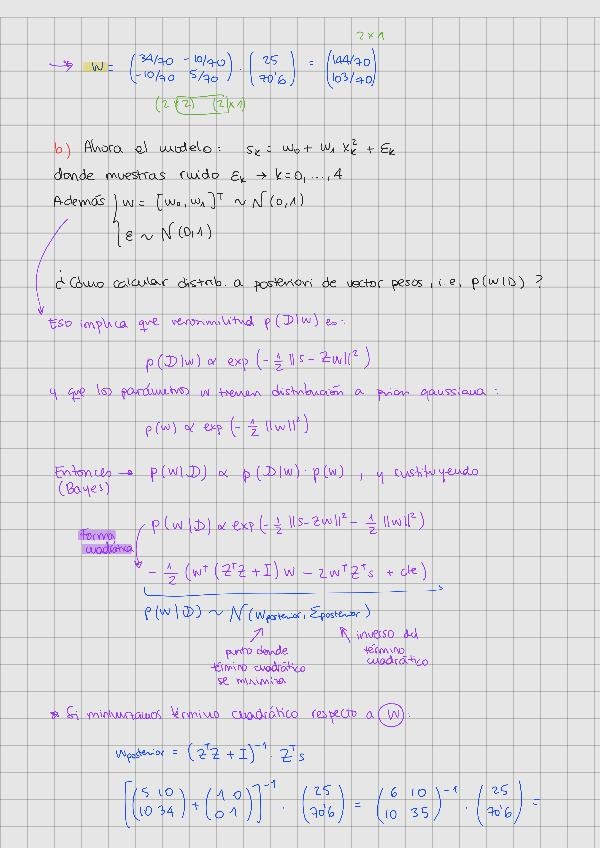 2 x 1
→ W = (34/70 -10/70 -10/70 5/70) · (25 70'6) = (144/70 103/70)
(2 x 2) (2 x 1)
b) Ahora el modelo: sₖ = w₀ + w₁ xₖ² + εₖ
donde muestras ruido εₖ → k = 0, ..., 4
Además { w = [w₀, w₁]ᵀ ~ N(0,1)
ε ~ N(0,1)
¿Cómo calcular distrib. a posteriori de vector pesos, i.e, p(w|D)?
Eso implica que verosimilitud p(D|w) es:
p(D|w) ∝ exp(-1/2 ||s - Zw||²)
y que los parámetros w tienen distribución a priori gaussiana:
p(w) ∝ exp(-1/2 ||w||²)
Entonces → p(w|D) ∝ p(D|w) · p(w), y sustituyendo
(Bayes)
p(w|D) ∝ exp(-1/2 ||s - Zw||² - 1/2 ||w||²)
Forma
cuadrática
-1/2 (wᵀ(ZᵀZ + I)w - 2wᵀZᵀs + cte)
p(w|D) ~ N(wposterior, Σposterior)
punto donde
término cuadrático
se minimiza
inverso del
término
cuadrático
* Si minimizamos término cuadrático respecto a W:
wposterior = (ZᵀZ + I)⁻¹ · Zᵀs
[(5 10 10 34) + (1 0 0 1)]⁻¹ · (25 70'6) = (6 10 10 35)⁻¹ · (25 70'6) =